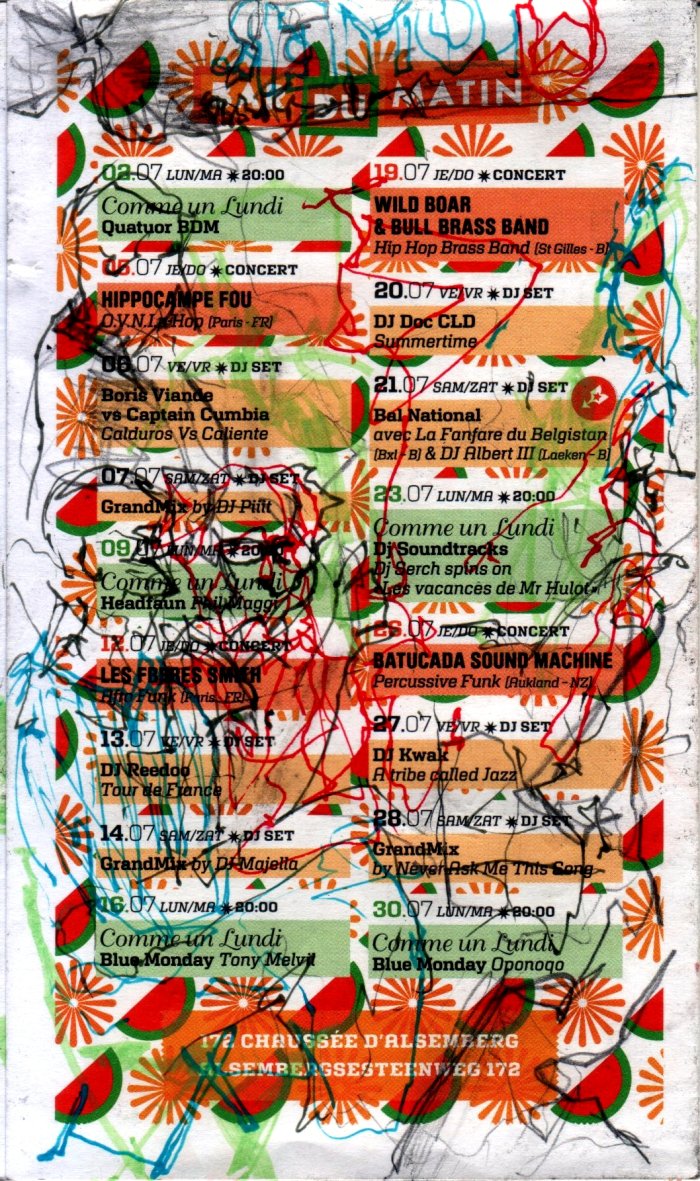 DU MATIN
02.07 LUN/MA ✷ 20:00
Comme un Lundi
Quatuor BDM
05.07 JE/DO ✷ CONCERT
HIPPOCAMPE FOU
O.V.N.I. Hop (Paris - FR)
06.07 VE/VR ✷ DJ SET
Boris Viande
vs Captain Cumbia
Calduros Vs Caliente
07.07 SAM/ZAT ✷ DJ SET
GrandMix by DJ Piiit
09.07 LUN/MA ✷ 20:00
Comme un Lundi
Headfaun Phil Maggi
12.07 JE/DO ✷ CONCERT
LES FRÈRES SMITH
Afro Funk (Paris - FR)
13.07 VE/VR ✷ DJ SET
DJ Reedoo
Tour de France
14.07 SAM/ZAT ✷ DJ SET
GrandMix by DJ Majella
16.07 LUN/MA ✷ 20:00
Comme un Lundi
Blue Monday Tony Melvil
19.07 JE/DO ✷ CONCERT
WILD BOAR
& BULL BRASS BAND
Hip Hop Brass Band (St Gilles - B)
20.07 VE/VR ✷ DJ SET
DJ Doc CLD
Summertime
21.07 SAM/ZAT ✷ DJ SET
Bal National
avec La Fanfare du Belgistan
(Bxl - B) & DJ Albert III (Laeken - B)
23.07 LUN/MA ✷ 20:00
Comme un Lundi
Dj Soundtracks
Dj Serch spins on
«Les vacances de Mr Hulot»
26.07 JE/DO ✷ CONCERT
BATUCADA SOUND MACHINE
Percussive Funk (Aukland - NZ)
27.07 VE/VR ✷ DJ SET
DJ Kwak
A tribe called Jazz
28.07 SAM/ZAT ✷ DJ SET
GrandMix
by Never Ask Me This Song
30.07 LUN/MA ✷ 20:00
Comme un Lundi
Blue Monday Oponopo
172 CHAUSSÉE D'ALSEMBERG
ALSEMBERGSESTEENWEG 172